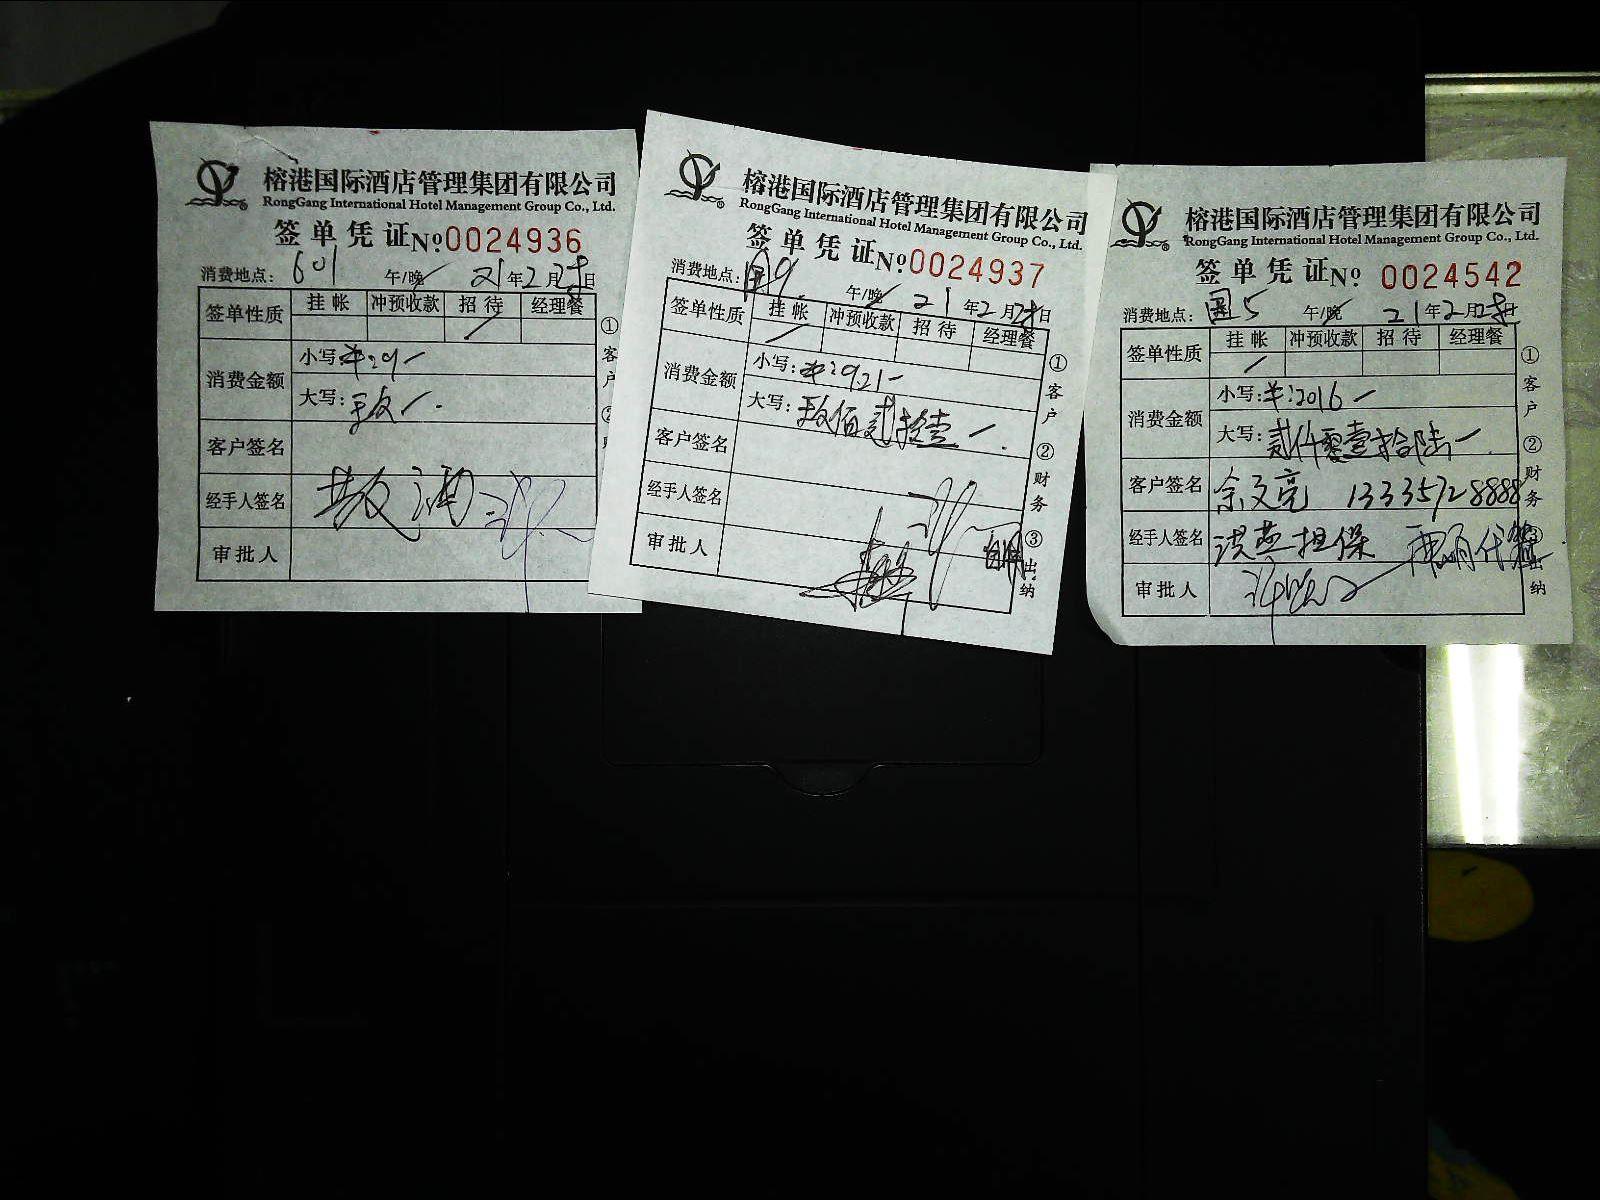 榕港国际酒店管理集团有限公司
RongGang International Hotel Management Group Co., Ltd.
签单凭证 No 0024936
消费地点: 601 午/晚 21年2月 日
签单性质 挂帐 冲预收款 招待 经理餐
消费金额 小写: ¥:9一
大写: 玖
客户签名
经手人签名
审批人
① 客户
榕港国际酒店管理集团有限公司
RongGang International Hotel Management Group Co., Ltd.
签单凭证 No 0024937
消费地点: 国9 午/晚 21年2月 日
签单性质 挂帐 冲预收款 招待 经理餐
消费金额 小写: ¥:921一
大写: 玖佰贰拾壹
客户签名
经手人签名
审批人
① 客户 ② 财务 ③ 出纳
榕港国际酒店管理集团有限公司
RongGang International Hotel Management Group Co., Ltd.
签单凭证 No 0024542
消费地点: 国5 午/晚 21年2月 日
签单性质 挂帐 冲预收款 招待 经理餐
消费金额 小写: ¥:2016一
大写: 贰仟零壹拾陆一
客户签名 余文亮 13335728888
经手人签名 洪燕担保
审批人
① 客户 ② 财务 ③ 出纳